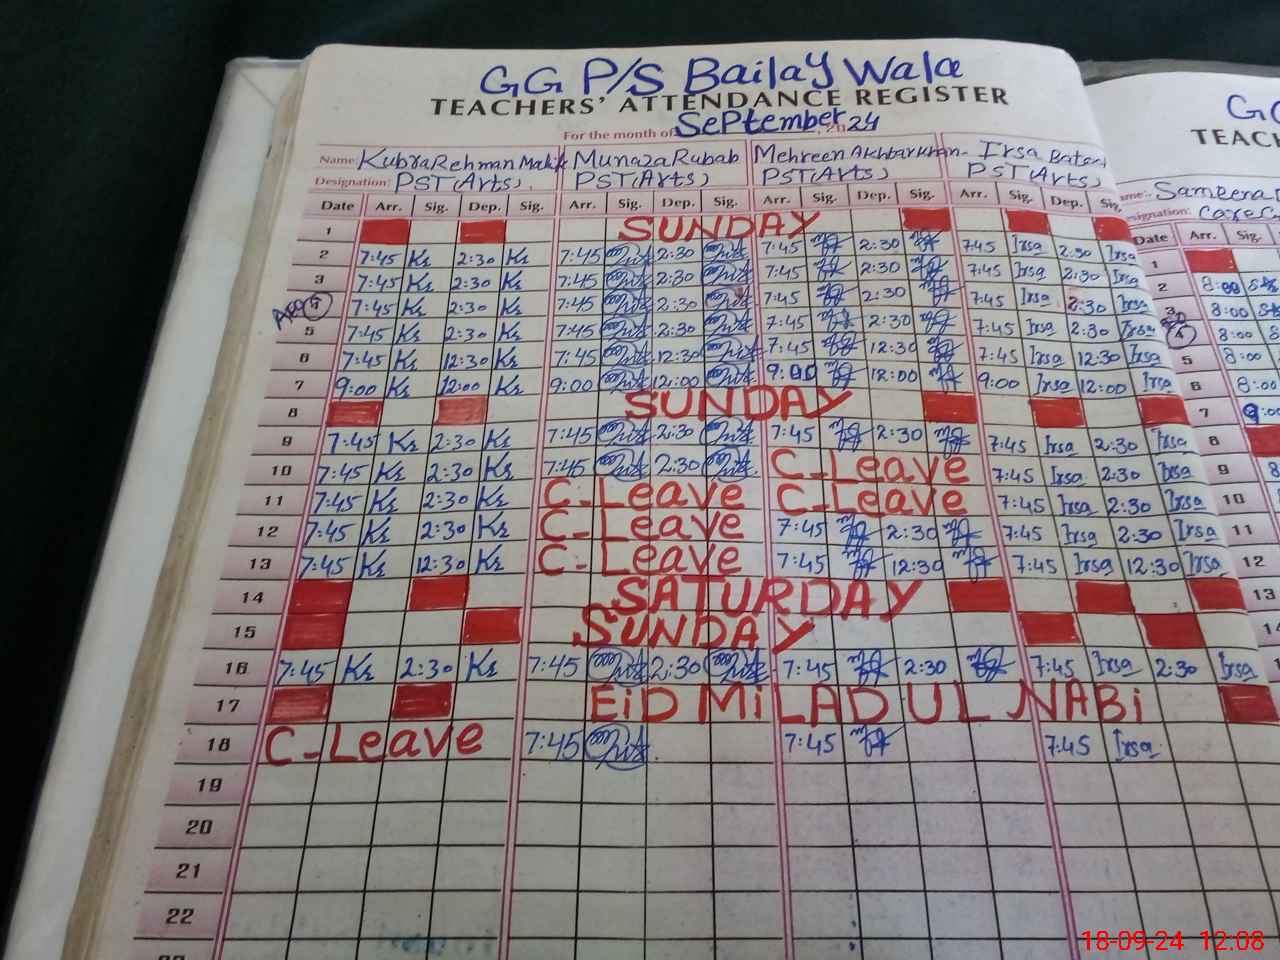 GG P/S Bailay Wala
TEACHERS' ATTENDANCE REGISTER
For the month of September, 2024
Name: Kubra Rehman Malik Munaza Rubab Mehreen Akhtar Khan Irsa Batool
Designation: PST(Arts). PST(Arts) PST(Arts) PST(Arts)
Date Arr. Sig. Dep. Sig. Arr. Sig. Dep. Sig. Arr. Sig. Dep. Sig. Arr. Sig. Dep. Sig.
1 SUNDAY
2 7:45 Kr 2:30 Kr 7:45 2:30 7:45 2:30 7:45 Irsa 2:30 Irsa
3 7:45 Kr 2:30 Kr 7:45 2:30 7:45 2:30 7:45 Irsa 2:30 Irsa
4 7:45 Kr 2:30 Kr 7:45 2:30 7:45 2:30 7:45 Irsa 2:30 Irsa
5 7:45 Kr 2:30 Kr 7:45 2:30 7:45 2:30 7:45 Irsa 2:30 Irsa
6 7:45 Kr 12:30 Kr 7:45 12:30 7:45 12:30 7:45 Irsa 12:30 Irsa
7 9:00 Kr 12:00 Kr 9:00 12:00 9:00 12:00 9:00 Irsa 12:00 Irsa
8 SUNDAY
9 7:45 Kr 2:30 Kr 7:45 2:30 7:45 2:30 7:45 Irsa 2:30 Irsa
10 7:45 Kr 2:30 Kr 7:45 2:30 C-Leave 7:45 Irsa 2:30 Irsa
11 7:45 Kr 2:30 Kr C-Leave C-Leave 7:45 Irsa 2:30 Irsa
12 7:45 Kr 2:30 Kr C-Leave 7:45 2:30 7:45 Irsa 2:30 Irsa
13 7:45 Kr 12:30 Kr C-Leave 7:45 12:30 7:45 Irsa 12:30 Irsa
14 SATURDAY
15 SUNDAY
16 7:45 Kr 2:30 Kr 7:45 2:30 7:45 2:30 7:45 Irsa 2:30 Irsa
17 EiD MiLAD UL NABi
18 C-Leave 7:45 7:45 7:45 Irsa
19
20
21
22
Sameena
Date Arr. Sig.
1
2 8:00
3 8:00
4 8:00
5 8:00
6 8:00
7 9:00
8
9
10
11
12
13
14
18-09-24 12:08